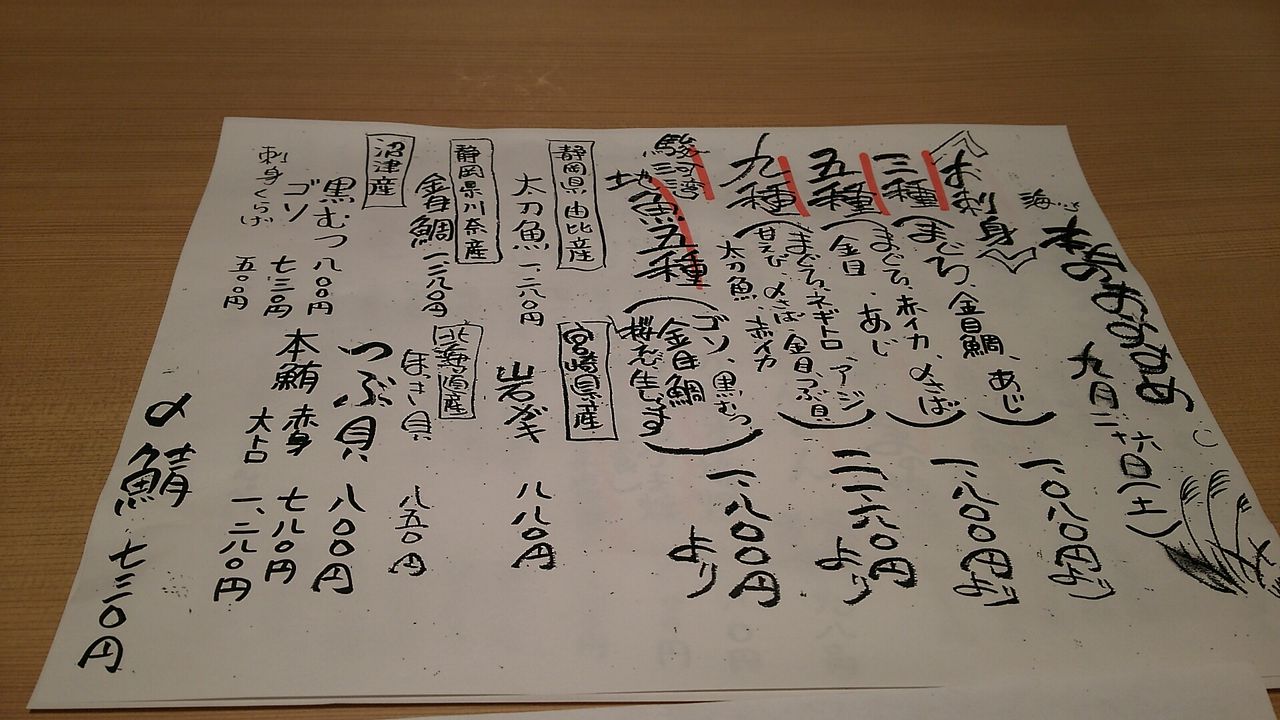 本日のおすすめ
九月二十六日(土)
海
お刺身
三種(まぐろ、金目鯛、あじ) 一、〇八〇円より
五種(まぐろ、赤イカ、〆さば
金目、あじ) 一、八〇〇円より
九種(まぐろ、ネギトロ、アジ
甘えび、〆さば、金目、つぶ貝
太刀魚、赤イカ) 二、二六〇円より
駿河湾
地魚五種(ゴソ、黒むつ
金目鯛
桜えび、生しらす) 一、八〇〇円より
静岡県由比産
太刀魚 一、二八〇円
静岡県川奈産
金目鯛 一、二八〇円
沼津産
黒むつ 八〇〇円
ゴソ 七三〇円
刺身くらげ 五〇〇円
宮崎県産
岩ガキ 八八〇円
北海道産
ほき貝 八五〇円
つぶ貝 八〇〇円
本鮪 赤身 七八〇円
大トロ 一、二八〇円
〆鯖 七三〇円